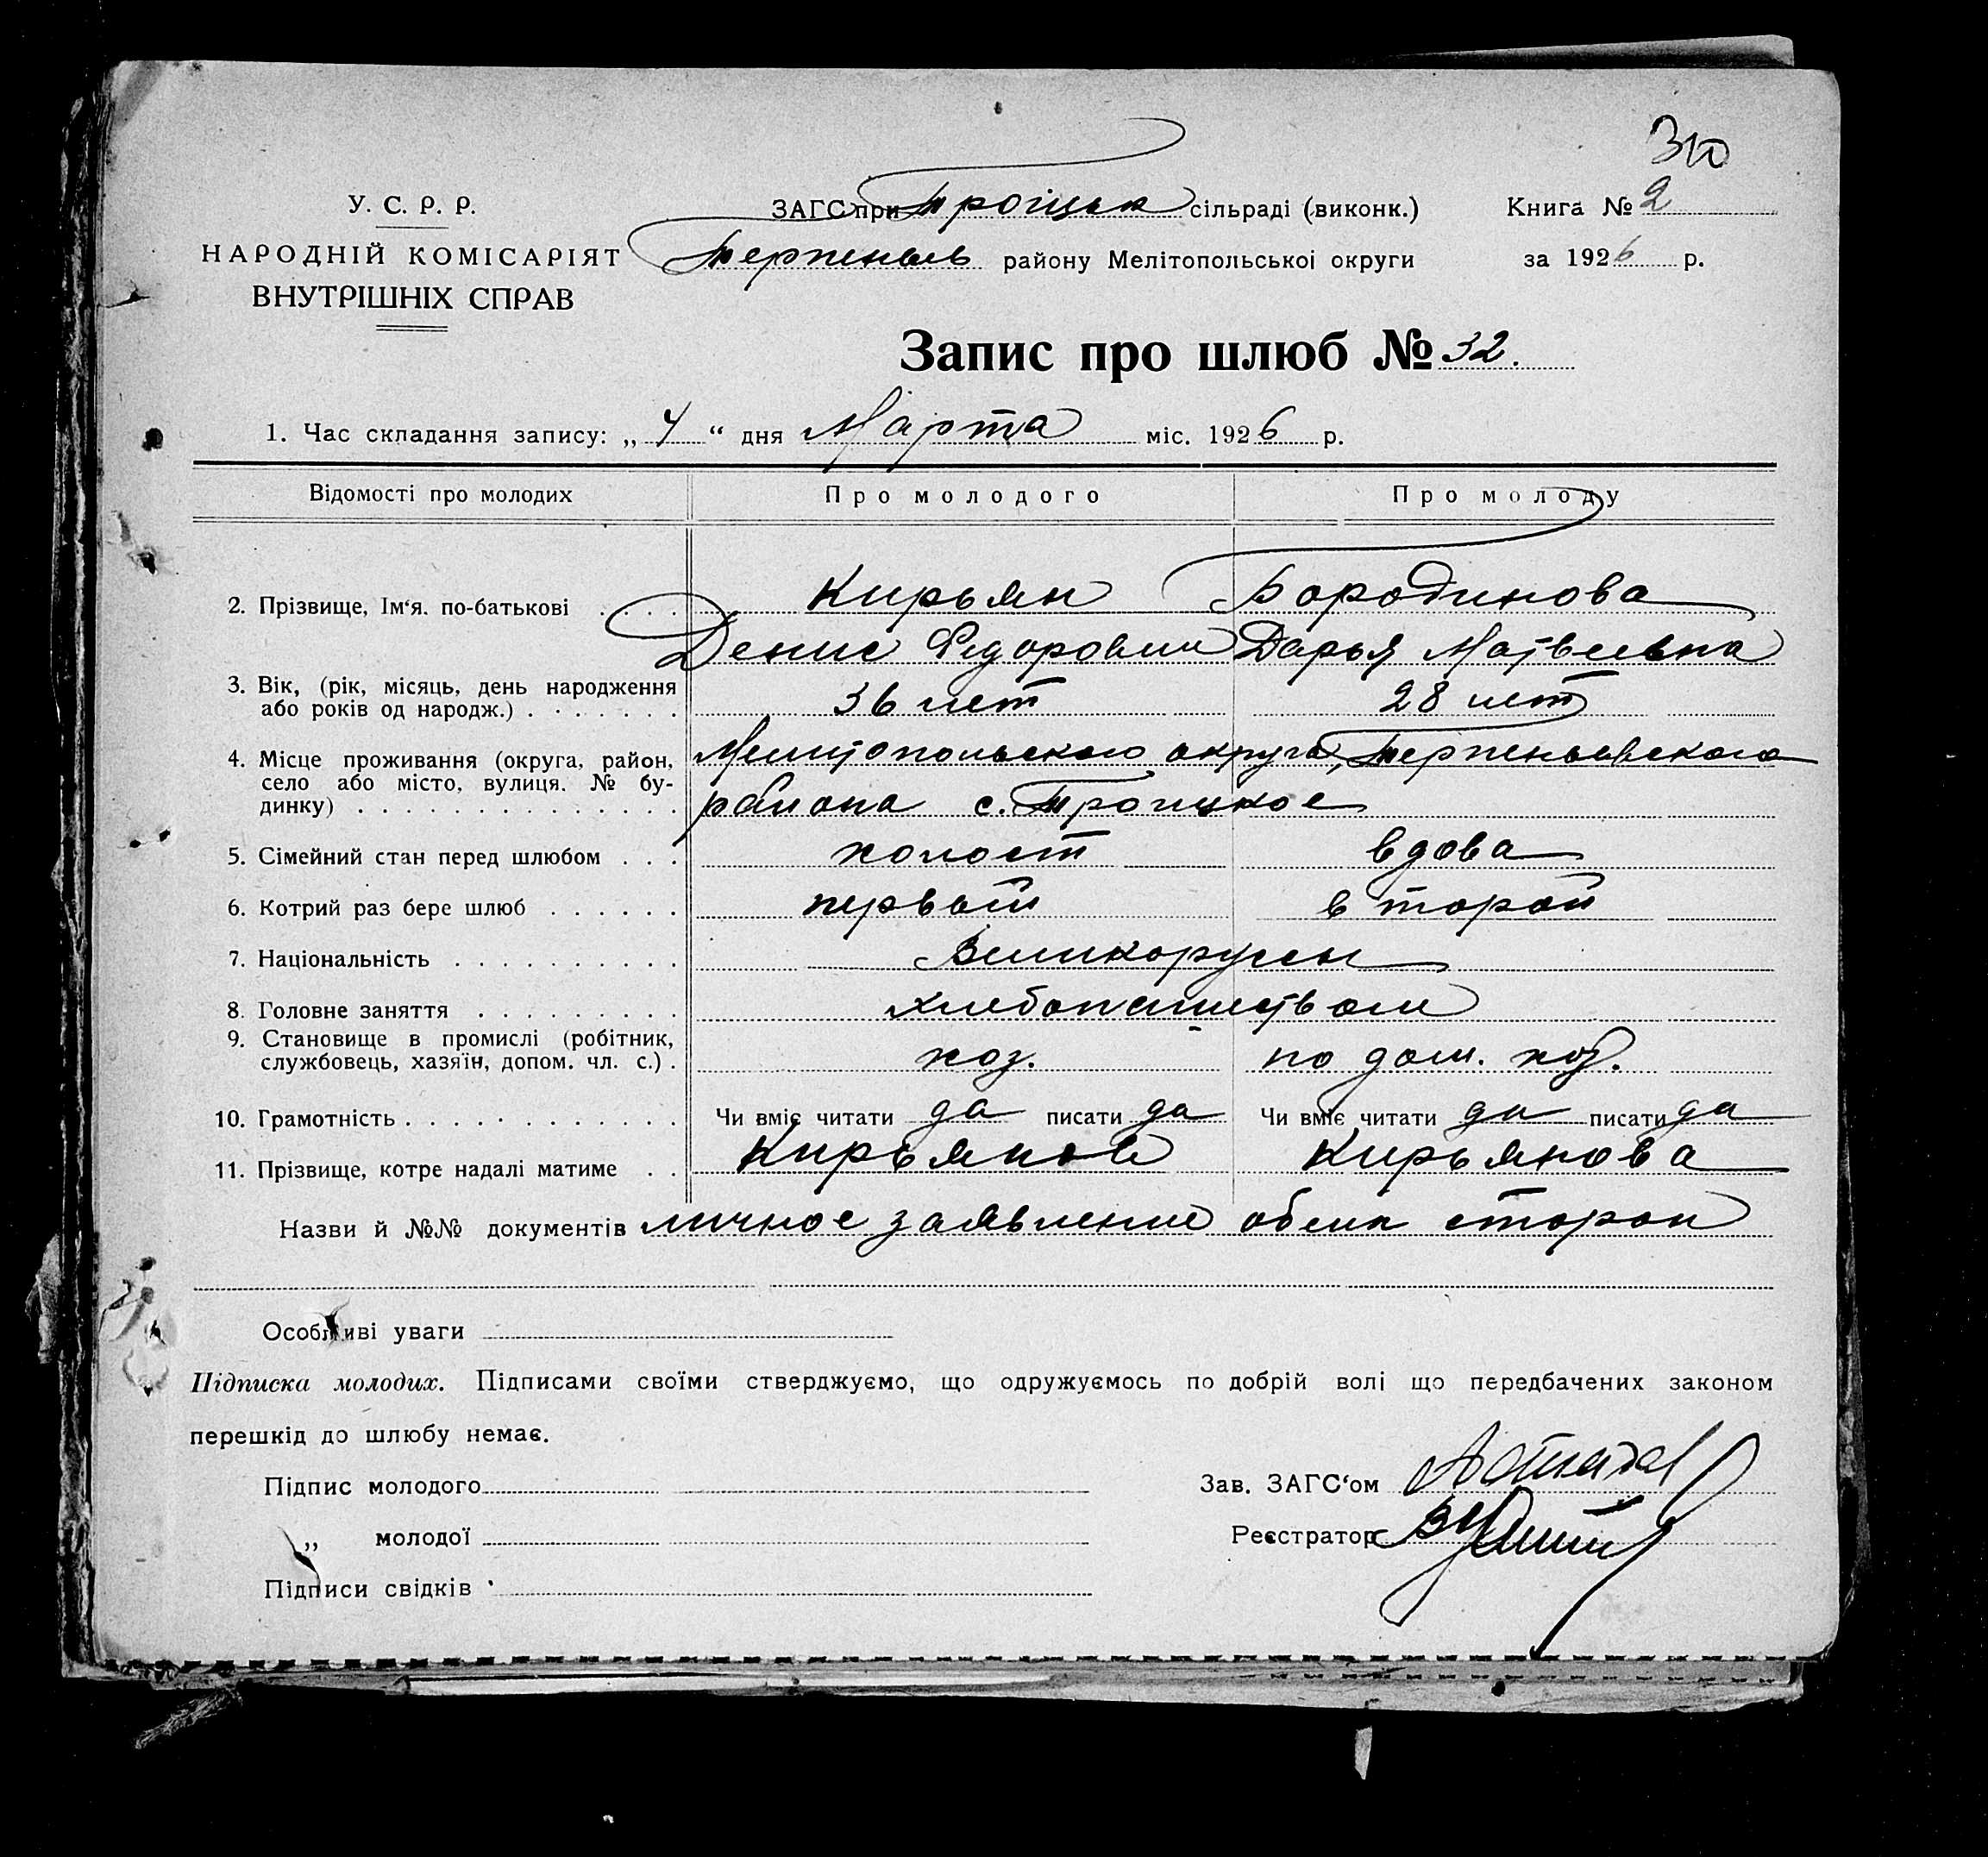 310
У. С. Р. Р.
НАРОДНІЙ КОМІСАРІЯТ
ВНУТРІШНІХ СПРАВ
ЗАГС при Троїцьк сільраді (виконк.)
Терпеньев району Мелітопольської округи
Книга № 2
за 1926 р.
Запис про шлюб № 32.
1. Час складання запису: „ 4 “ дня Марта міс. 1926 р.
Відомості про молодих Про молодого Про молоду
2. Прізвище, Ім‘я. по-батькові . . . . Кирьян Бородинова
Денис Федорович Дарья Матвеевна
3. Вік, (рік, місяць, день народження
або років од народж.) . . . . . . . 36 лет 28 лет
4. Місце проживання (округа, район,
село або місто, вулиця. № бу-
динку) . . . . . . . . . . . . . .
Мелитопольского округа, Терпеньевского
района с. Троицкое
5. Сімейний стан перед шлюбом . . . холост вдова
6. Котрий раз бере шлюб . . . . . . первый второй
7. Національність . . . . . . . . . . Великорусы
8. Головне заняття . . . . . . . . . хлебопашеством
9. Становище в промислі (робітник,
службовець, хазяїн, допом. чл. с.) . хоз. по дом. хоз.
10. Грамотність . . . . . . . . . . . . Чи вміє читати да писати да Чи вміє читати да писати да
11. Прізвище, котре надалі матиме . . Кирьянов Кирьянова
Назви й №№ документів личное заявление обеих сторон
Особливі уваги
Підписка молодих. Підписами своїми стверджуємо, що одружуємось по добрій волі що передбачених законом
перешкід до шлюбу немає.
Підпис молодого
„ молодої
Підписи свідків
Зав. ЗАГС‘ом
Реєстратор